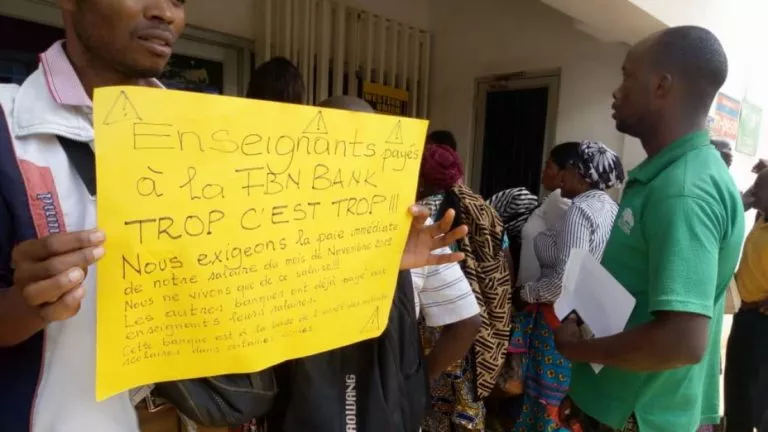 Enseignants payés
à la FBN BANK
TROP C'EST TROP !!!
Nous exigeons la paie immédiate
de notre salaire du mois de Novembre 2019
Nous ne vivons que de ce salaire !!
Les autres banques ont déjà payé aux
enseignants leurs salaires.
Cette banque est à la base de l'arrêt des activités
scolaires dans certaines écoles
WESTERN
UNION
ROWANG